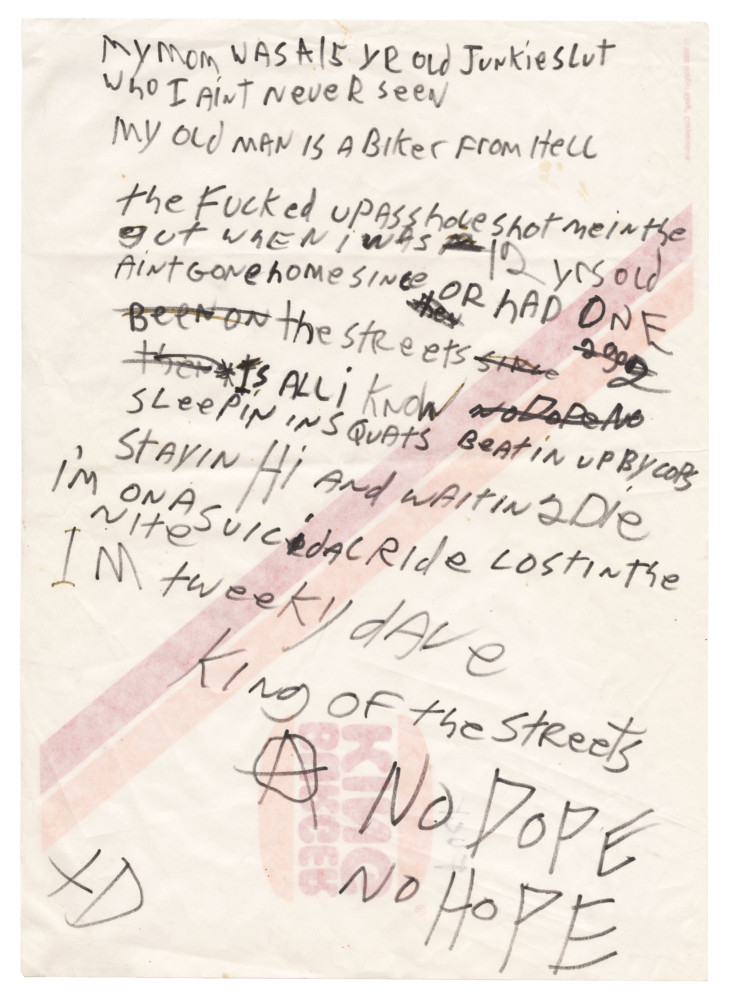 MY MOM WAS A 15 YR Old Junkie slut
who I Aint Never seen
MY Old MAN IS A BIker From Hell
the Fucked up Asshole shot me in the
gut when i was 12 yrs old
Aint gone home since OR hAD ONE
Been on the streets since
then Is ALL i Know No Dope No
SLeepin in SQuats Beat in up By cops
Stayin Hi And wAitin 2 Die
I'm ON A SuicidAL Ride Lost in the
Nite
I'M tweeky dAve
King OF the Streets
Ⓐ NO DOPE
NO HOPE
XD
BURGER
KING